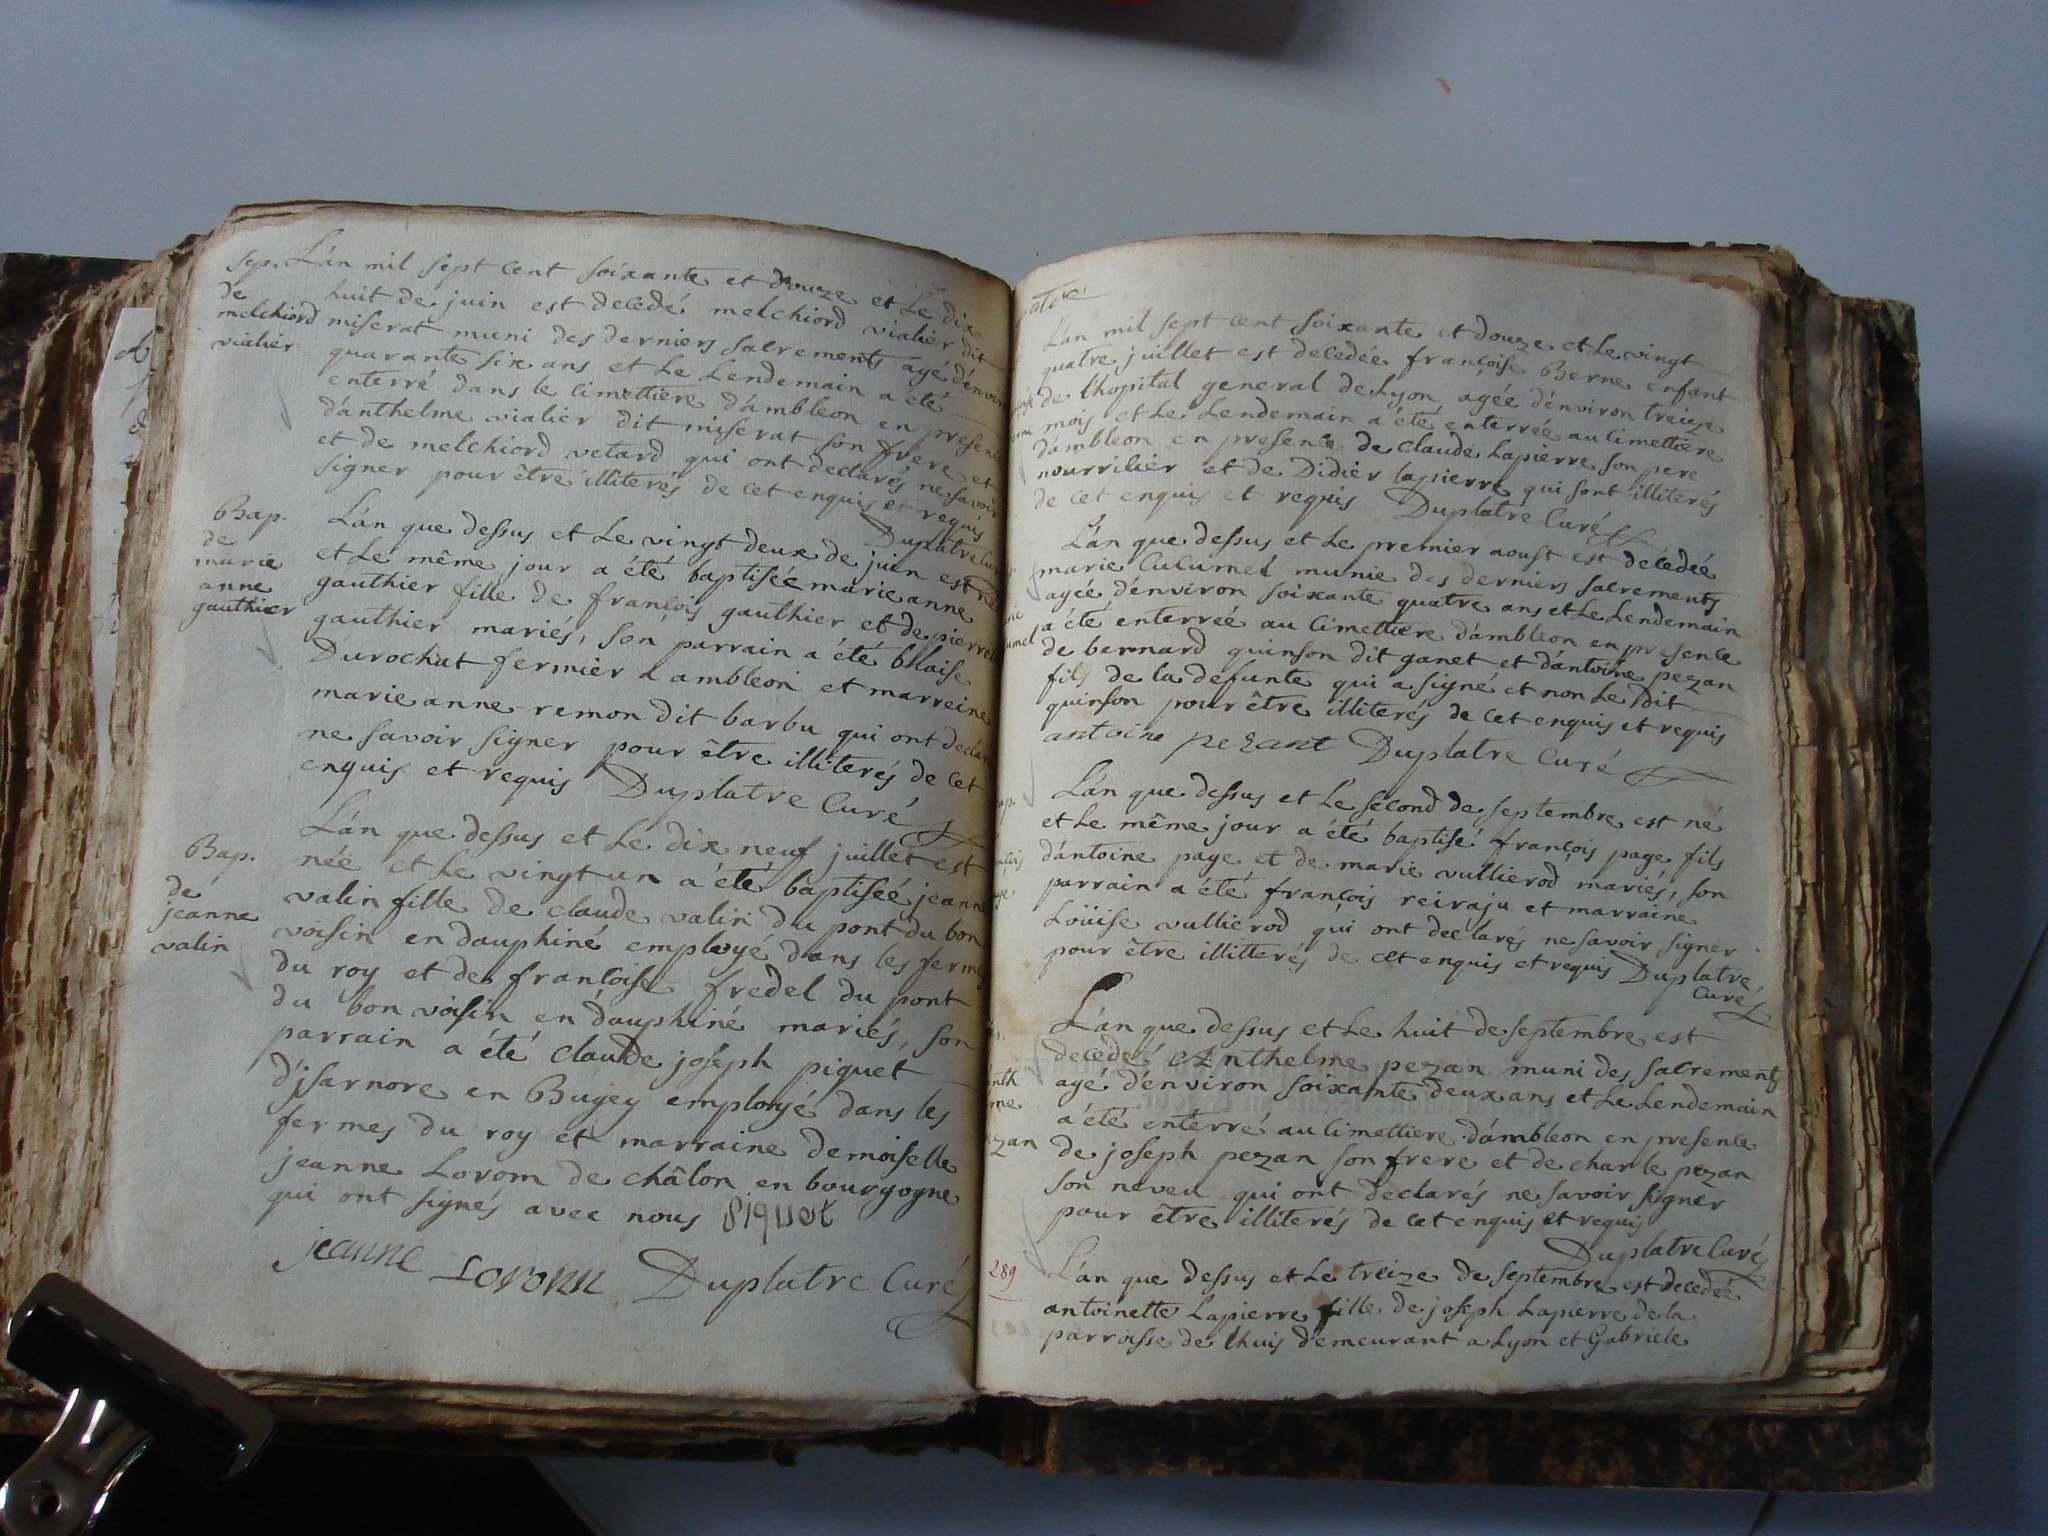 Sep. L'an mil sept cent soixante et douze et Le dix
de huit de juin est decedé melchiord vialier dit
melchiord miserat muni des derniers sacrements agé d'environ
vialier quarante six ans et Le Lendemain a été
enterré dans le cimettiere d'ambleon en presence
d'anthelme vialier dit miserat son frere et
et de melchiord vetard qui ont declarés ne savoir
signer pour être illiterés de cet enquis et requis
Duplatre Curé
Bap. L'an que dessus et Le vingt deux de juin est née
de et Le même jour a été baptisée marie anne
marie gauthier fille de françois gauthier et de pierrete
anne gauthier mariés, son parrain a été blaise
gauthier Durochat fermier a ambleon et marreine
marie anne remon dit barbu qui ont declaré
ne savoir signer pour être illiterés de cet
enquis et requis Duplatre Curé
L'an que dessus et Le dix neuf juillet est
Bap. née et Le vingt un a été baptisée jeanne
de valin fille de claude valin du pont du bon
jeanne voisin en dauphiné employé dans les fermes
valin du roy et de françoise fredel du pont
du bon voisin en dauphiné mariés, son
parrain a été claude joseph piquet
d'jsarnore en Bugey employé dans les
fermes du roy et marraine demoiselle
jeanne Lorom de châlon en bourgogne
qui ont signés avec nous Piquet
jeanne Loronn Duplatre Curé
L'an mil sept cent soixante et douze et Le vingt
quatre juillet est decedée françoise Berne enfant
de l'hopital general de Lyon agée d'environ treize
mois et Le Lendemain a été enterrée au cimettiere
d'ambleon en presence de claude Lapierre son pere
nourrilier et de Didier lapierre qui sont illiterés
de cet enquis et requis Duplatre Curé
L'an que dessus et Le premier aoust est décedée
marie Culumel munie des derniers sacrements
agée d'environ soixante quatre ans et Le Lendemain
a été enterrée au cimettiere d'ambleon en presence
de bernard quinson dit ganet et d'antoine pezan
fils de la defunte qui a signé et non Le Dit
quinson pour être illiterés de cet enquis et requis
antoine pezant Duplatre Curé
L'an que dessus et Le second de septembre est né
et Le même jour a été baptisé françois page fils
d'antoine page et de marie vullierod mariés, son
parrain a été françois reiraju et marraine
Loüise vullierod qui ont declarés ne savoir signer
pour être illitterés de cet enquis et requis Duplatre
Curé
L'an que dessus et Le huit de septembre est
decedé Anthelme pezan muni des sacrements
agé d'environ soixante deux ans et Le Lendemain
a été enterré au cimettiere d'ambleon en presence
de joseph pezan son frere et de charle pezan
son neveu qui ont declarés ne savoir signer
pour être illiterés de cet enquis et requis
Duplatre Curé
289 L'an que dessus et Le treize de septembre est decedée
antoinette Lapierre fille de joseph Lapierre de la
parroisse de lhuis demeurant a Lyon et Gabriele